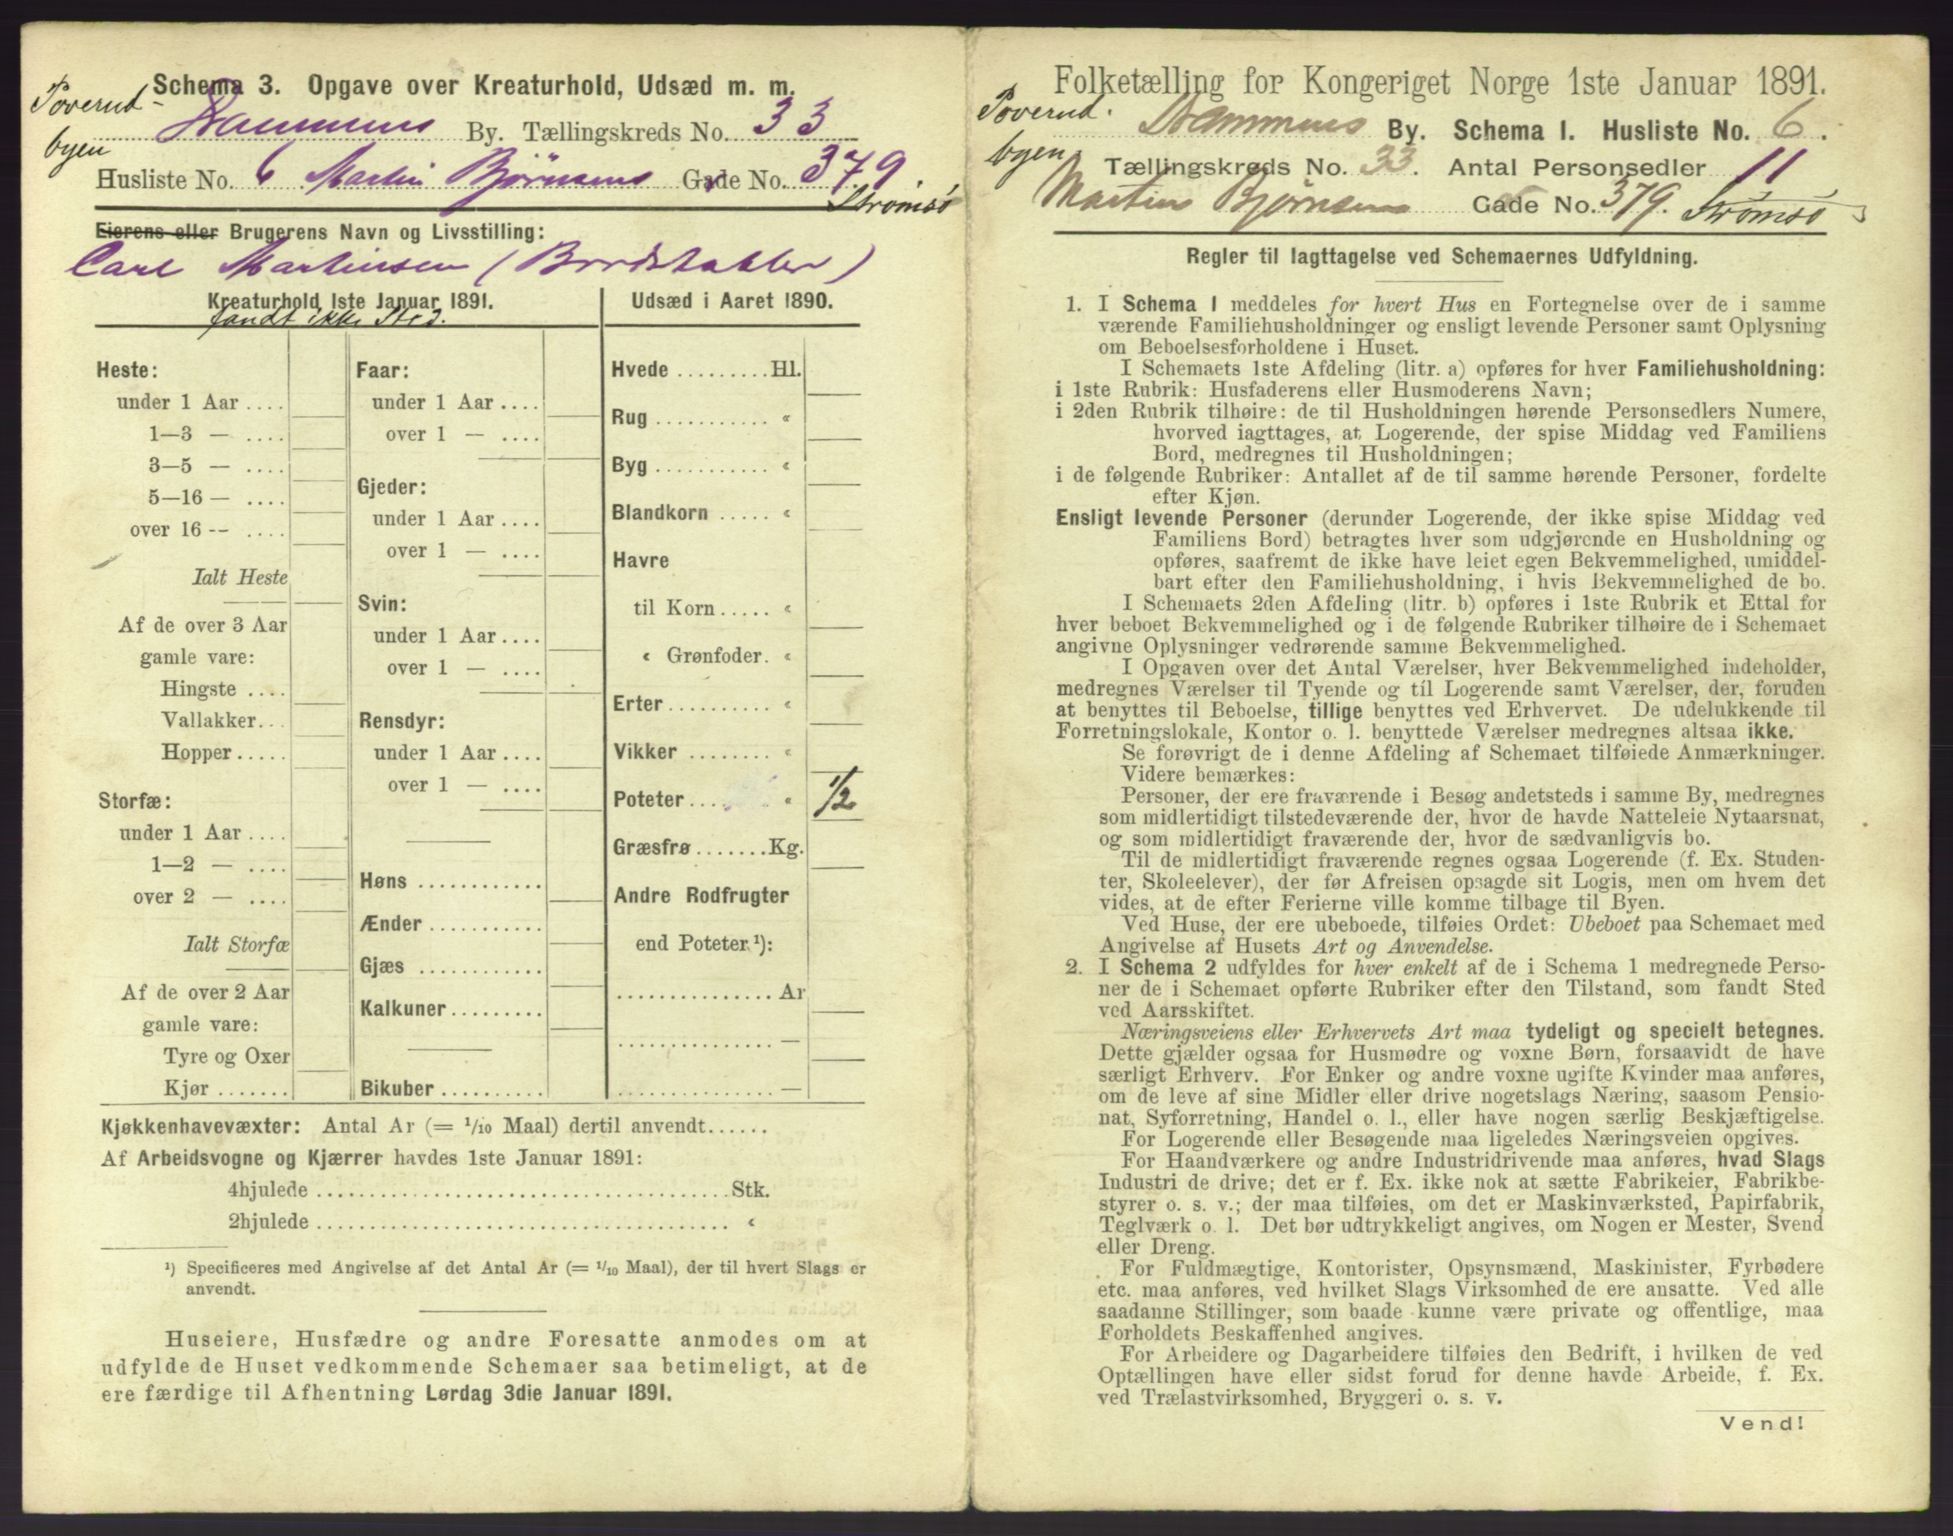 Schema 3. Opgave over Kreaturhold, Udsæd m. m.
Poverud-
byen
Drammens By. Tællingskreds No. 33
Husliste No. 6 Martin Bjørnsens Gade No. 379.
Strømsø
Eierens eller Brugerens Navn og Livsstilling:
Carl Martinsen (Bordstabler)
Kreaturhold 1ste Januar 1891.
fandt ikke Sted.
Heste:
under 1 Aar ....
1—3 — ....
3—5 — ....
5—16 — ....
over 16 -- ....
Ialt Heste
Af de over 3 Aar
gamle vare:
Hingste ....
Vallakker...
Hopper.....
Storfæ:
under 1 Aar ....
1—2 — ....
over 2 — ....
Ialt Storfæ
Af de over 2 Aar
gamle vare:
Tyre og Oxer
Kjør .......
Faar:
under 1 Aar ....
over 1 — ....
Gjeder:
under 1 Aar ....
over 1 — ....
Svin:
under 1 Aar ....
over 1 — ....
Rensdyr:
under 1 Aar ....
over 1 — ....
Høns ............
Ænder ...........
Gjæs ............
Kalkuner.........
Bikuber ..........
Udsæd i Aaret 1890.
Hvede .........Hl.
Rug ........... "
Byg ........... "
Blandkorn ..... "
Havre
til Korn ..... "
" Grønfoder. "
Erter.......... "
Vikker ........ "
Poteter.... " 1/2
Græsfrø.......Kg.
Andre Rodfrugter
end Poteter ¹):
............... Ar
............... —
............... —
Kjøkkenhavevæxter: Antal Ar (= 1/10 Maal) dertil anvendt......
Af Arbeidsvogne og Kjærrer havdes 1ste Januar 1891:
4hjulede .......................................Stk.
2hjulede ....................................... "
¹) Specificeres med Angivelse af det Antal Ar (= 1/10 Maal), der til hvert Slags er
anvendt.
Huseiere, Husfædre og andre Foresatte anmodes om at
udfylde de Huset vedkommende Schemaer saa betimeligt, at de
ere færdige til Afhentning Lørdag 3die Januar 1891.
Folketælling for Kongeriget Norge 1ste Januar 1891.
Poverud.
byen
Drammens By. Schema I. Husliste No. 6.
Tællingskreds No. 33. Antal Personsedler 11
Martin Bjørnsens Gade No. 379. Strømsø
Regler til Iagttagelse ved Schemaernes Udfyldning.
1. I Schema I meddeles for hvert Hus en Fortegnelse over de i samme
værende Familiehusholdninger og ensligt levende Personer samt Oplysning
om Beboelsesforholdene i Huset.
I Schemaets 1ste Afdeling (litr. a) opføres for hver Familiehusholdning:
i 1ste Rubrik: Husfaderens eller Husmoderens Navn;
i 2den Rubrik tilhøire: de til Husholdningen hørende Personsedlers Numere,
hvorved iagttages, at Logerende, der spise Middag ved Familiens
Bord, medregnes til Husholdningen;
i de følgende Rubriker: Antallet af de til samme hørende Personer, fordelte
efter Kjøn.
Ensligt levende Personer (derunder Logerende, der ikke spise Middag ved
Familiens Bord) betragtes hver som udgjørende en Husholdning og
opføres, saafremt de ikke have leiet egen Bekvemmelighed, umiddel-
bart efter den Familiehusholdning, i hvis Bekvemmelighed de bo.
I Schemaets 2den Afdeling (litr. b) opføres i 1ste Rubrik et Ettal for
hver beboet Bekvemmelighed og i de følgende Rubriker tilhøire de i Schemaet
angivne Oplysninger vedrørende samme Bekvemmelighed.
I Opgaven over det Antal Værelser, hver Bekvemmelighed indeholder,
medregnes Værelser til Tyende og til Logerende samt Værelser, der, foruden
at benyttes til Beboelse, tillige benyttes ved Erhvervet. De udelukkende til
Forretningslokale, Kontor o. l. benyttede Værelser medregnes altsaa ikke.
Se forøvrigt de i denne Afdeling af Schemaet tilføiede Anmærkninger.
Videre bemærkes:
Personer, der ere fraværende i Besøg andetsteds i samme By, medregnes
som midlertidigt tilstedeværende der, hvor de havde Natteleie Nytaarsnat,
og som midlertidigt fraværende der, hvor de sædvanligvis bo.
Til de midlertidigt fraværende regnes ogsaa Logerende (f. Ex. Studen-
ter, Skoleelever), der før Afreisen opsagde sit Logis, men om hvem det
vides, at de efter Ferierne ville komme tilbage til Byen.
Ved Huse, der ere ubeboede, tilføies Ordet: Ubeboet paa Schemaet med
Angivelse af Husets Art og Anvendelse.
2. I Schema 2 udfyldes for hver enkelt af de i Schema 1 medregnede Perso-
ner de i Schemaet opførte Rubriker efter den Tilstand, som fandt Sted
ved Aarsskiftet.
Næringsveiens eller Erhvervets Art maa tydeligt og specielt betegnes.
Dette gjælder ogsaa for Husmødre og voxne Børn, forsaavidt de have
særligt Erhverv. For Enker og andre voxne ugifte Kvinder maa anføres,
om de leve af sine Midler eller drive nogetslags Næring, saasom Pensio-
nat, Syforretning, Handel o. l., eller have nogen særlig Beskjæftigelse.
For Logerende eller Besøgende maa ligeledes Næringsveien opgives.
For Haandværkere og andre Industridrivende maa anføres, hvad Slags
Industri de drive; det er f. Ex. ikke nok at sætte Fabrikeier, Fabrikbe-
styrer o. s. v.; der maa tilføies, om det er Maskinværksted, Papirfabrik,
Teglværk o. l. Det bør udtrykkeligt angives, om Nogen er Mester, Svend
eller Dreng.
For Fuldmægtige, Kontorister, Opsynsmænd, Maskinister, Fyrbødere
etc. maa anføres, ved hvilket Slags Virksomhed de ere ansatte. Ved alle
saadanne Stillinger, som baade kunne være private og offentlige, maa
Forholdets Beskaffenhed angives.
For Arbeidere og Dagarbeidere tilføies den Bedrift, i hvilken de ved
Optællingen have eller sidst forud for denne havde Arbeide, f. Ex.
ved Trælastvirksomhed, Bryggeri o. s. v.
Vend!